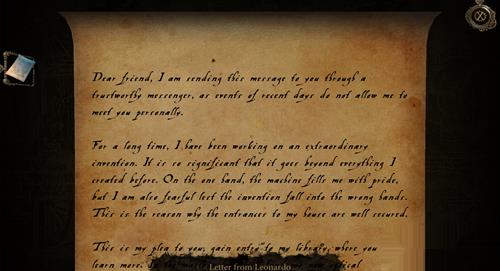 Dear friend, I am sending this message to you through a
trustworthy messenger, as events of recent days do not allow me to
meet you personally.
For a long time, I have been working on an extraordinary
invention. It is so significant that it goes beyond everything I
created before. On the one hand, the machine fills me with pride,
but I am also fearful lest the invention fall into the wrong hands.
This is the reason why the entrances to my house are well secured.
This is my plea to you: gain entry to my library, where you
learn more. In the
new optical
Letter from Leonardo